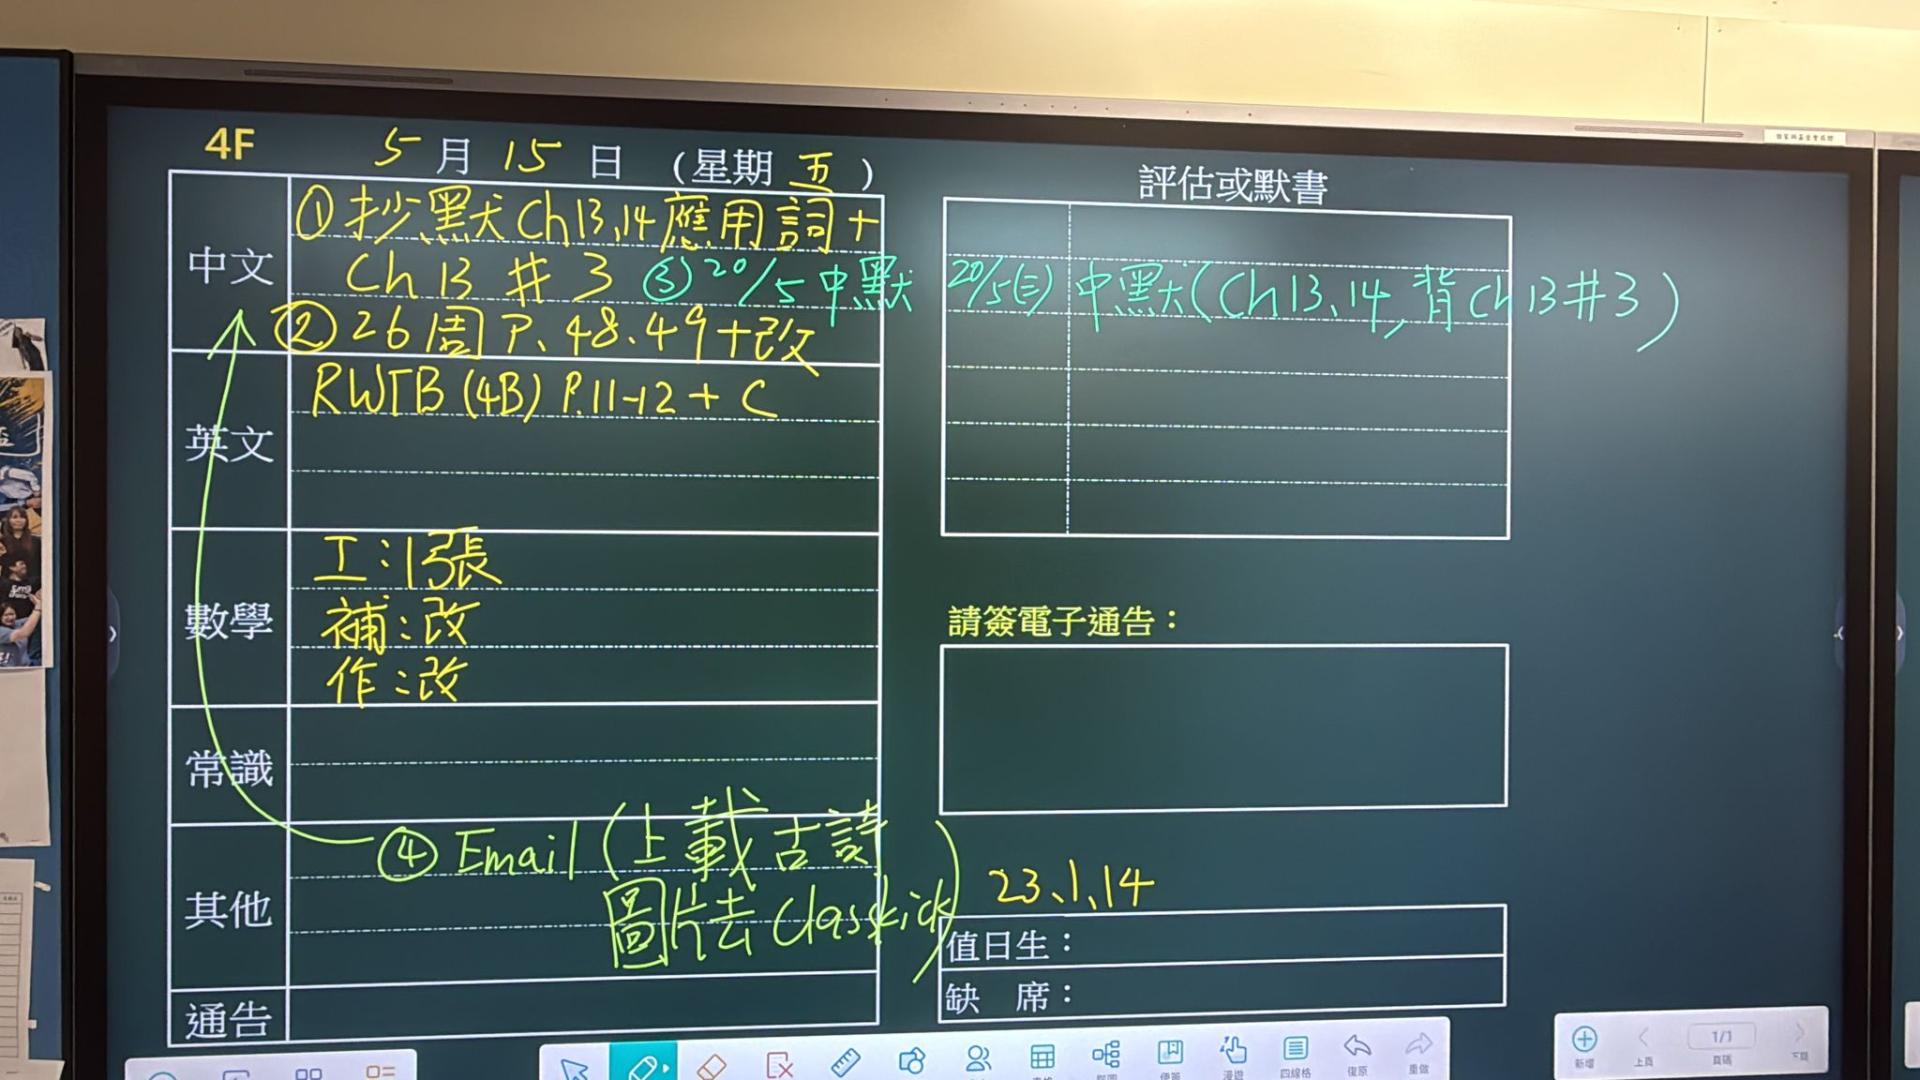 4F
5月15日（星期五）
中文
①抄默Ch13、14應用詞+
Ch13 #3 ③20/5中默
②26周P.48、49+改
英文
RWTB (4B) P.11-12 + C
數學
工：1張
補：改
作：改
常識
其他
④Email（上載古詩
圖片去Classkick）
通告
評估或默書
20/5(三) 中默(Ch13、14, 背Ch13#3)
請簽電子通告：
23、1、14
值日生：
缺　席：
新增
上頁
1/1
頁碼
下頁
便簽
漫遊
四線格
復原
重做